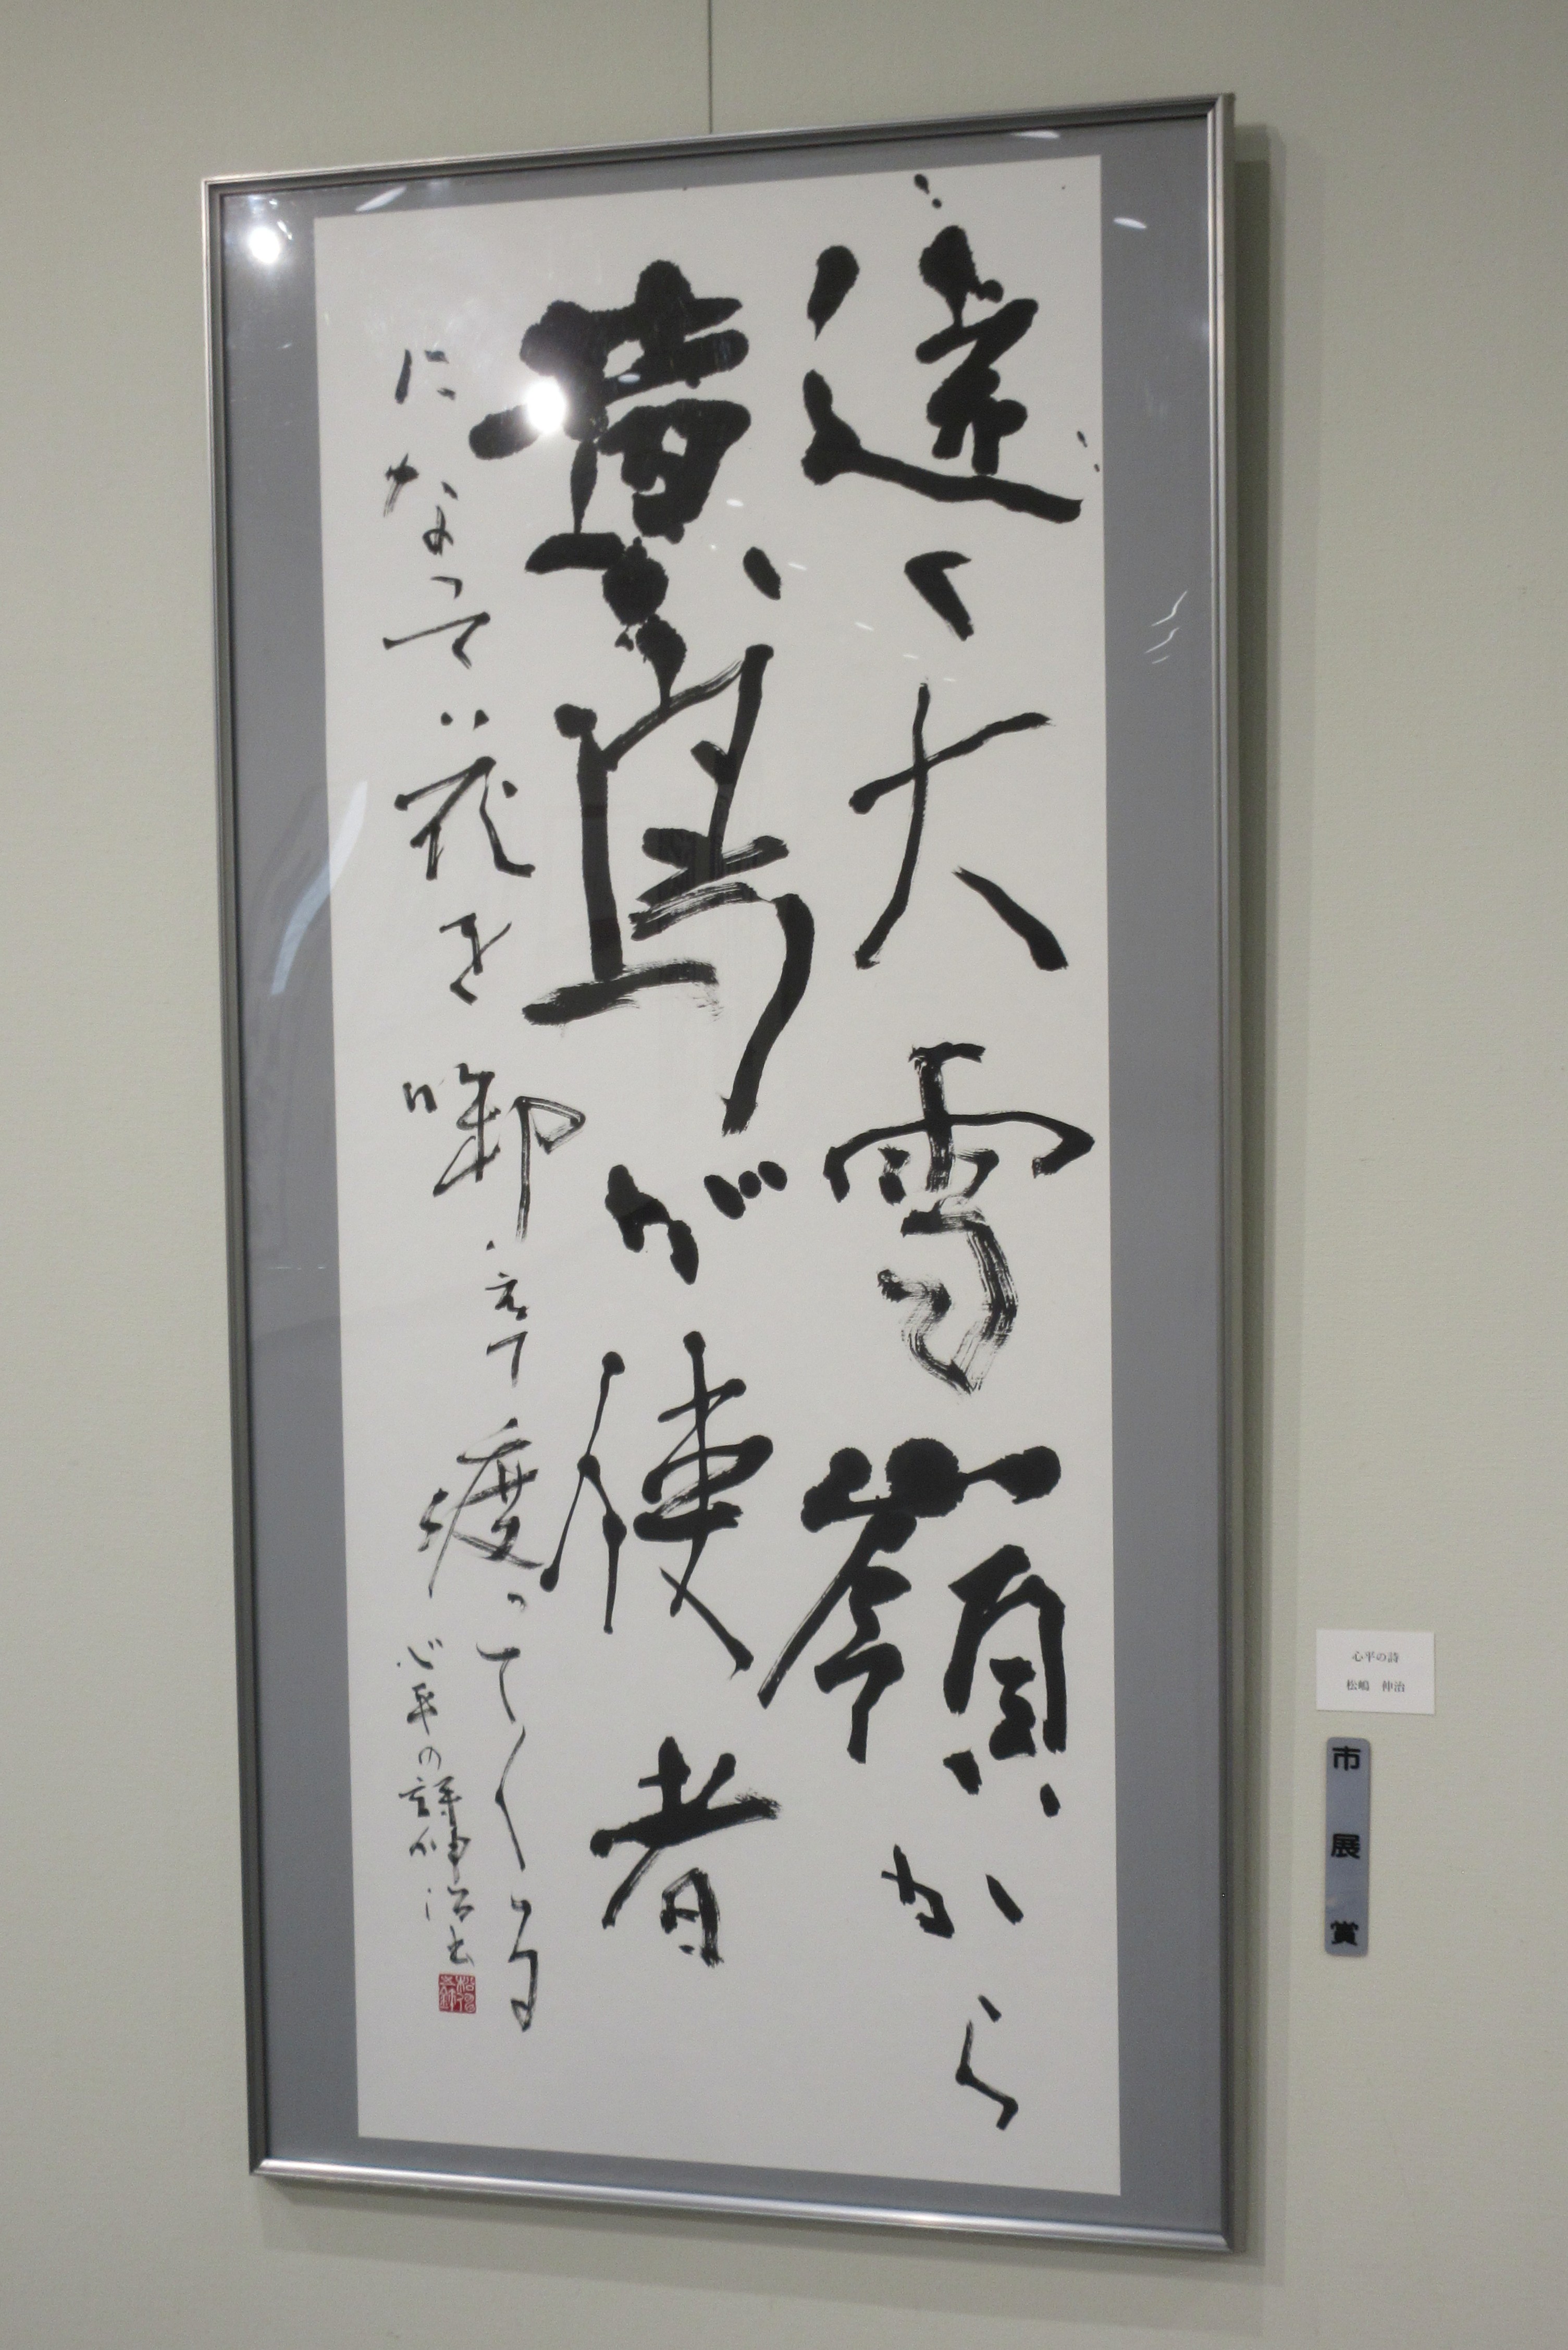 遠く大雪嶺から
黄鳥が使者
になって花を啣えて渡ってくる
心平の詩 伸治書
心平の詩
松嶋 伸治
市展賞